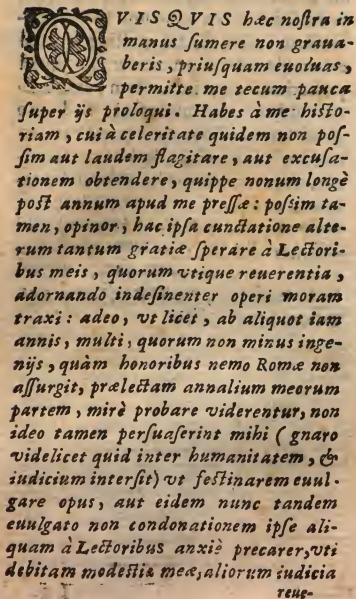 QVISQVIS hæc nostra in
manus sumere non graua-
beris, priusquam euoluas,
permitte me tecum pauca
super ijs proloqui. Habes à me histo-
riam, cui à celeritate quidem non pos-
sim aut laudem flagitare, aut excusa-
tionem obtendere, quippe nonum longè
post annum apud me pressæ: possim ta-
men, opinor, hac ipsa cunctatione alte-
rum tantum gratiæ sperare à Lectori-
bus meis, quorum vtique reuerentia,
adornando indesinenter operi moram
traxi: adeo, vt licet, ab aliquot iam
annis, multi, quorum non minus inge-
nijs, quàm honoribus nemo Romæ non
assurgit, prælectam annalium meorum
partem, mirè probare viderentur, non
ideo tamen persuaserint mihi (gnaro
videlicet quid inter humanitatem, &
iudicium intersit) vt festinarem euul-
gare opus, aut eidem nunc tandem
euulgato non condonationem ipse ali-
quam à Lectoribus anxiè precarer, vti
debitam modestiæ meæ, aliorum iudicia
reue-